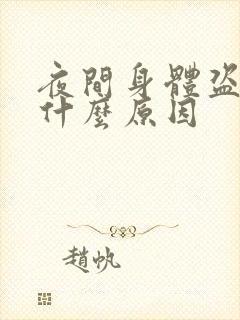 夜間身體盜
什麼原因
趙帆